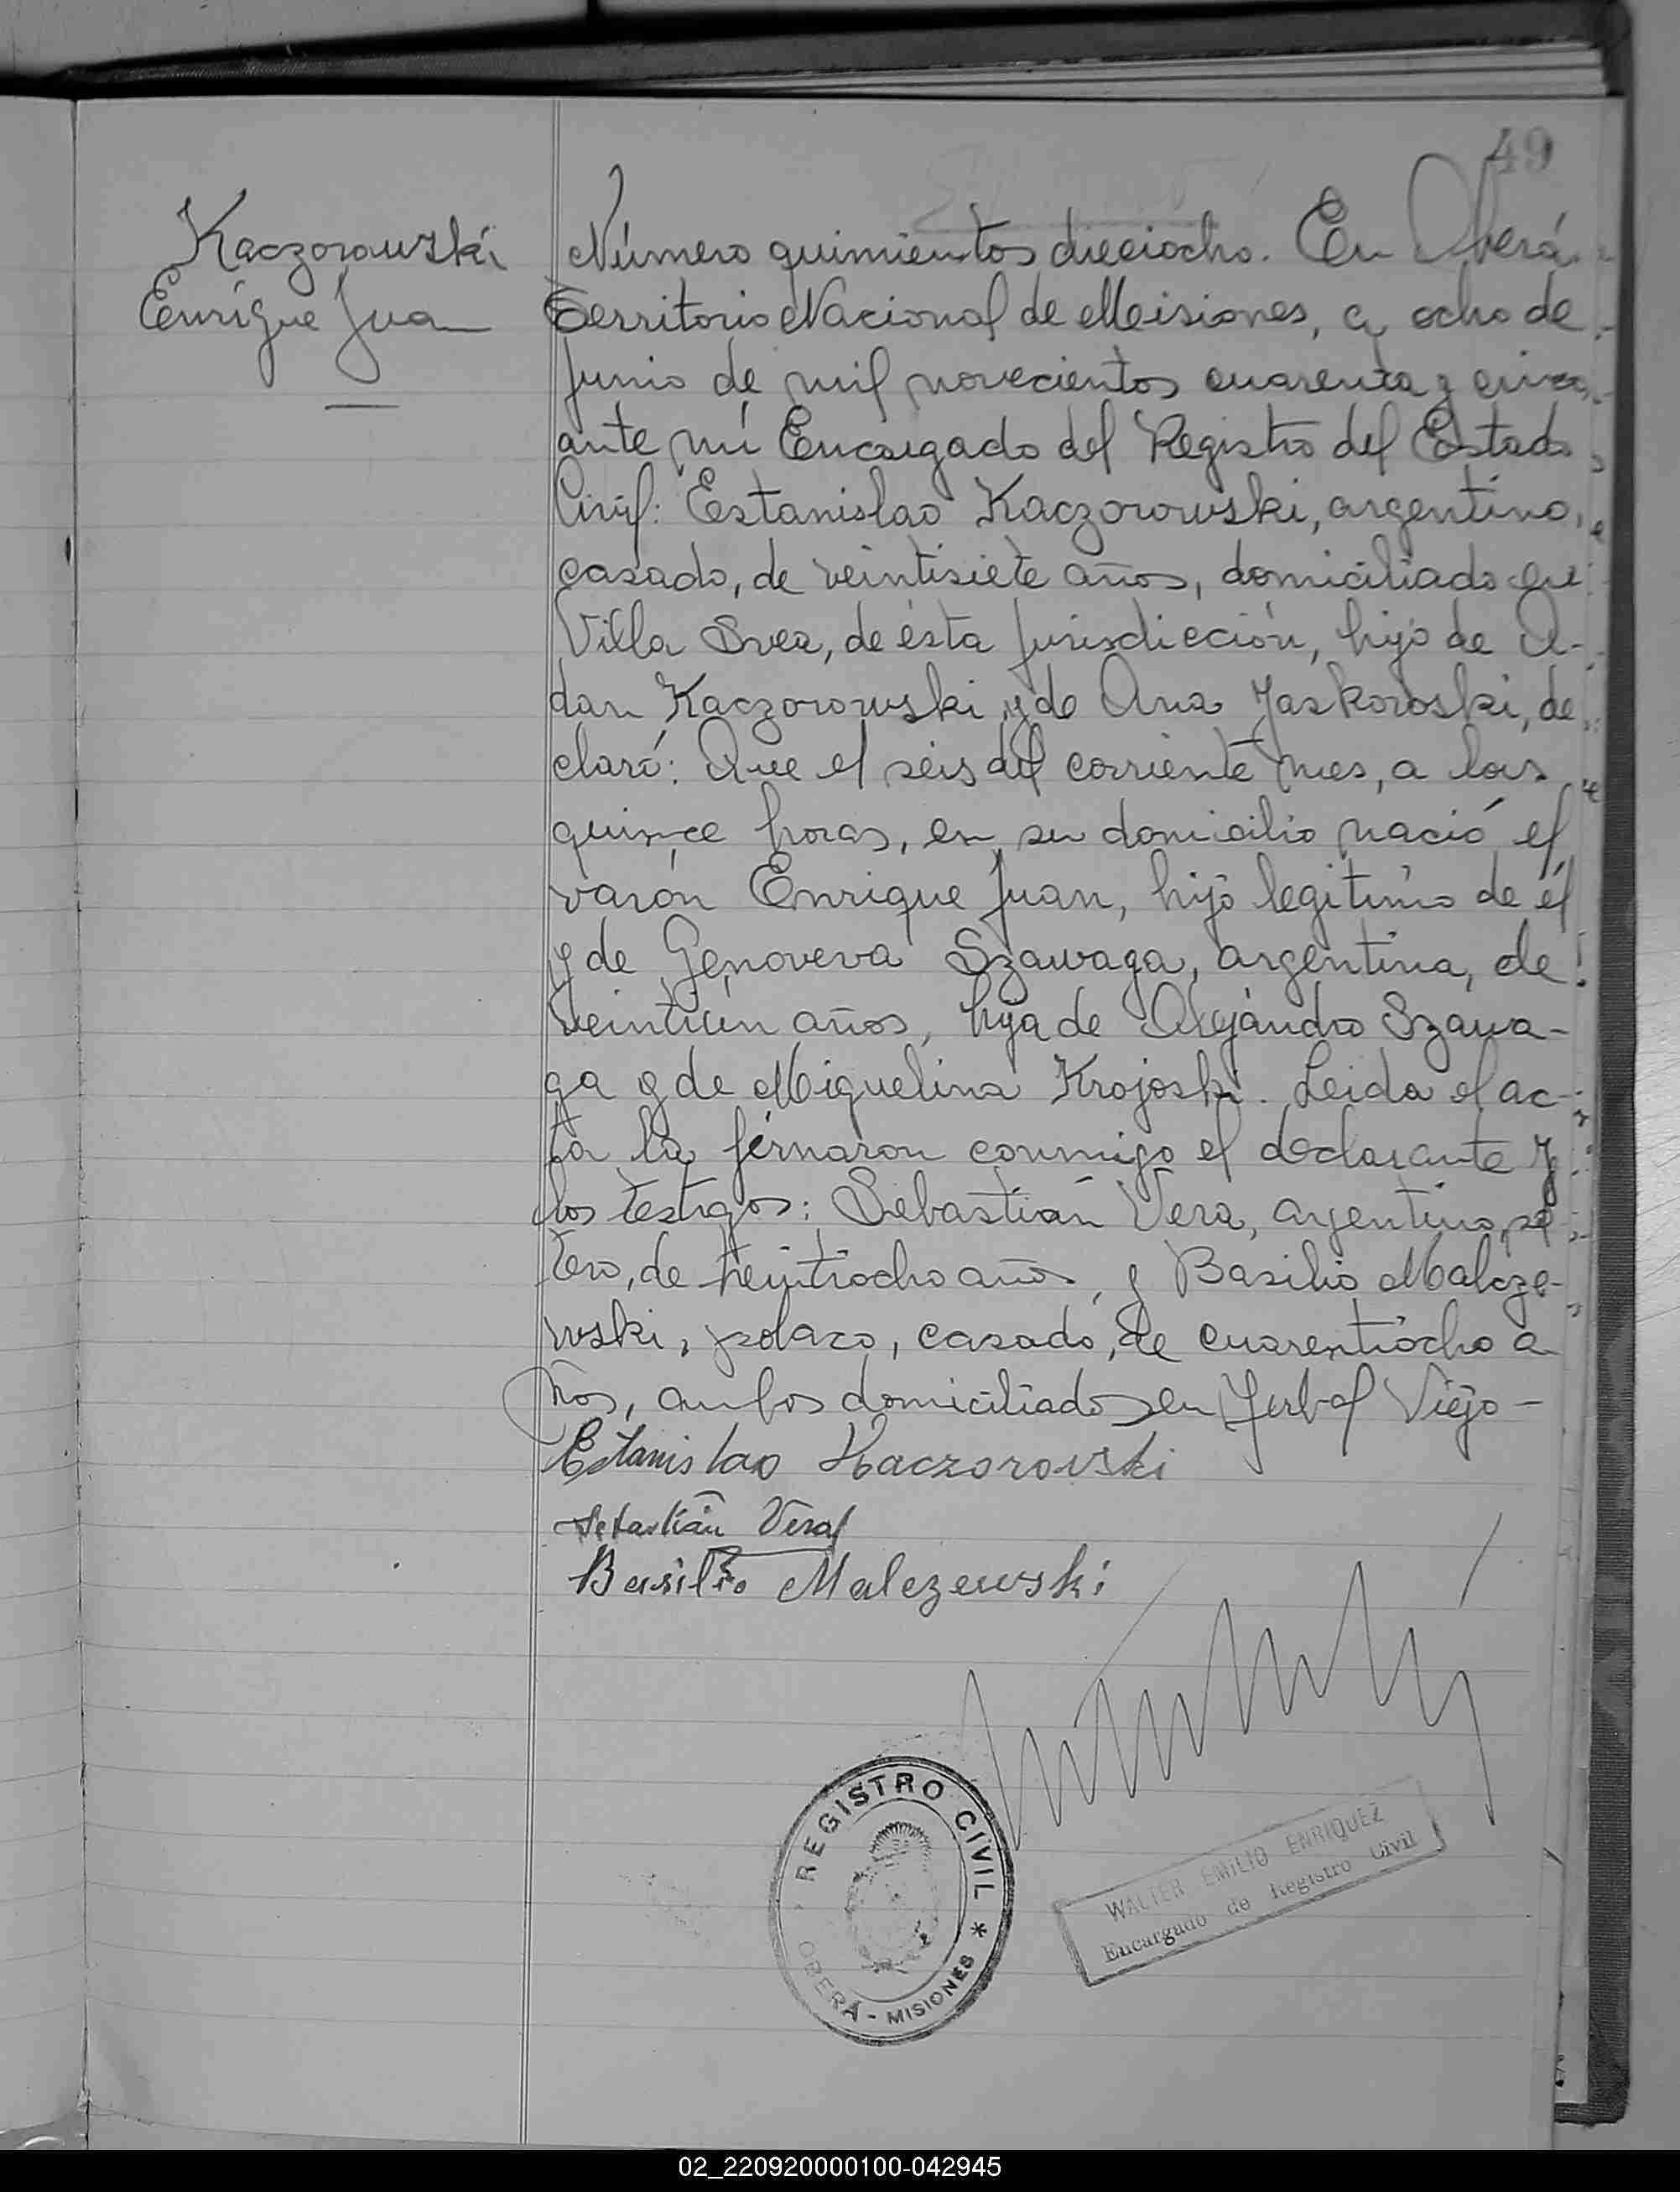 49
Kaczorowski
Enrique Juan
Número quinientos dieciocho. En Oberá
Territorio Nacional de Misiones, a ocho de
Junio de mil novecientos cuarenta y cinco,
ante mí Encargado del Registro del Estado
Civil: Estanislao Kaczorowski, argentino,
casado, de veintisiete años, domiciliado en
Villa Svea, de ésta jurisdicción, hijo de A-
dan Kaczorowski y de Ana Jaskoroski, de
claró: Que el seis del corriente mes, a las
quince horas, en su domicilio nació el
varón Enrique Juan, hijo legítimo de él
y de Genoveva Szawaga, argentina, de
veintiún años, hija de Alejandro Szawa-
ga y de Miguelina Krojoski. Leida el ac-
ta la firmaron conmigo el declarante y
los testigos: Sebastián Vera, argentino, sol
tero, de treintiocho años, y Basilio Malcze-
wski, polaco, casado, de cuarentiocho a
ños, ambos domiciliados en Yerbal Viejo -
Estanislao Kaczorowski
Sebastián Vera
Basilio Malczewski
REGISTRO CIVIL *
OBERÁ - MISIONES
WALTER EMILIO ENRIQUEZ
Encargado de Registro Civil
02_220920000100-042945